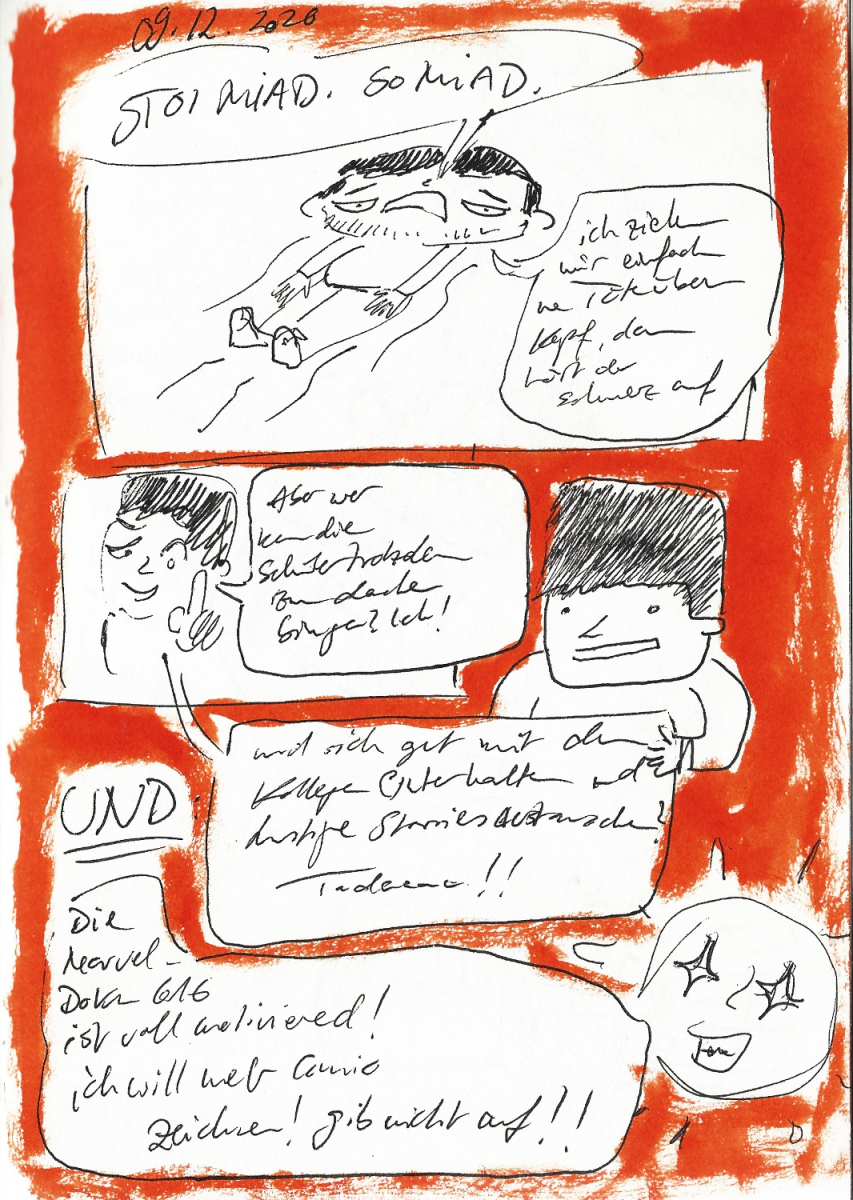 09.12.2020
STOI MIAD. SO MIAD.
ich zieh
mir einfach
ne Tüte übern
Kopf, dann
hört der
Schmerz auf
Aber wer
kann die
Schüler trotzdem
zum lachen
bringen? Ich!
und sich gut mit den
Kollegen unterhalten und
lustige Stories austauschen?
Tadaaaa!!
UND:
Die
Marvel-
Doku 616
ist voll motivierend!
ich will mehr Comic
zeichnen! gib nicht auf!!